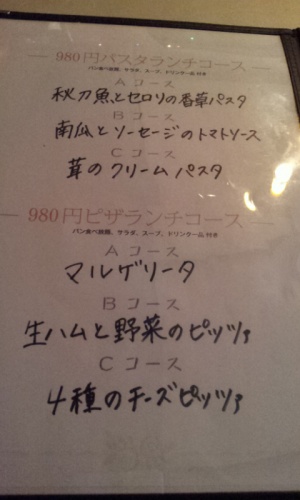 980円パスタランチコース
パン食べ放題、サラダ、スープ、ドリンク一品 付き
A コース
秋刀魚とセロリの香草パスタ
B コース
南瓜とソーセージのトマトソース
C コース
茸のクリームパスタ
980円ピザランチコース
パン食べ放題、サラダ、スープ、ドリンク一品 付き
A コース
マルゲリータ
B コース
生ハムと野菜のピッツァ
C コース
4種のチーズピッツァ